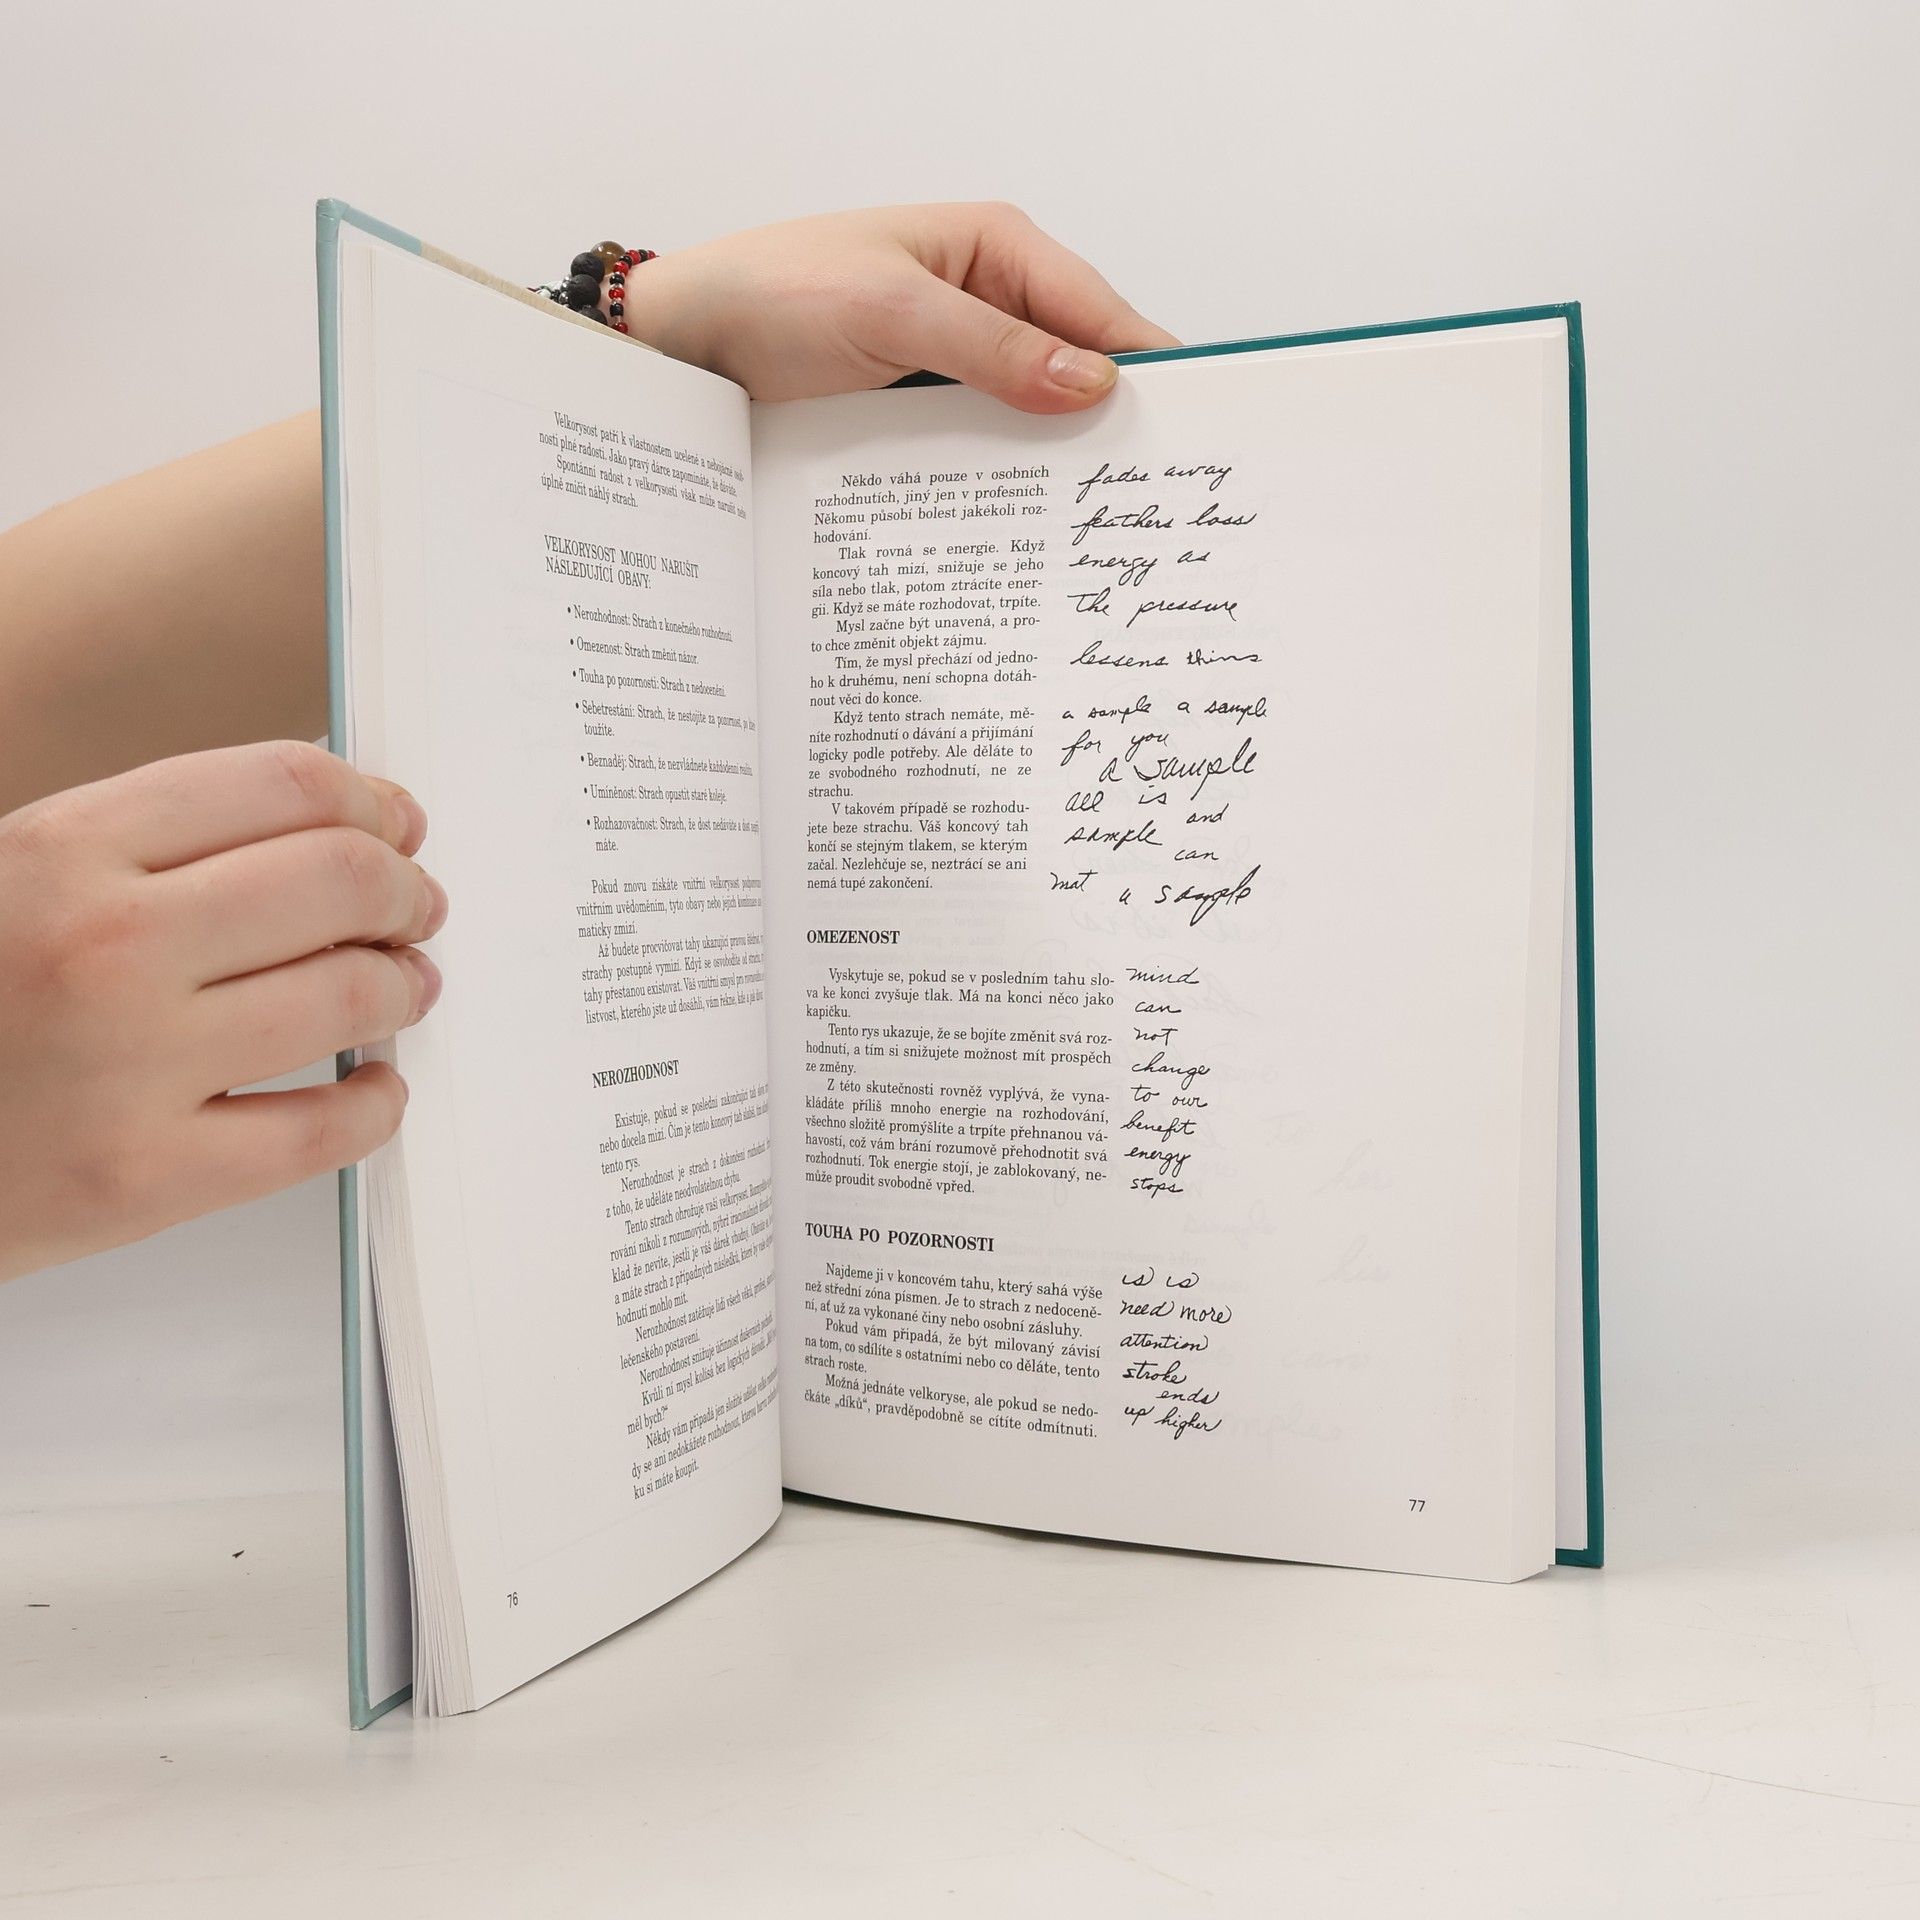 Velkorysost patří k vlastnostem ucelené a nebojácné osob-
nosti plné radosti. Jako pravý dárce zapomínáte, že dáváte.
Spontánní radost z velkorysosti však může narušit nebo
úplně zničit náhlý strach.
VELKORYSOST MOHOU NARUŠIT
NÁSLEDUJÍCÍ OBAVY:
• Nerozhodnost: Strach z konečného rozhodnutí.
• Omezenost: Strach změnit názor.
• Touha po pozornosti: Strach z nedocenění.
• Sebetrestání: Strach, že nestojíte za pozornost, po
toužíte.
• Beznaděj: Strach, že nezvládnete každodenní realitu.
• Umíněnost: Strach opustit staré koleje.
• Rozhazovačnost: Strach, že dost nedáváte a dost
máte.
Pokud znovu získáte vnitřní velkorysost
vnitřním uvědoměním, tyto obavy nebo jejich kombinace
maticky zmizí.
Až budete procvičovat tahy ukazující pravou
strachy postupně vymizí. Když se osvobodíte od strachu,
tahy přestanou existovat. Váš vnitřní smysl pro
listvost, kterého jste už dosáhli, vám řekne, kde a jak
NEROZHODNOST
Existuje, pokud se poslední zakončující tah
nebo docela mizí. Čím je tento koncový tah slabší, tím
tento rys.
Nerozhodnost je strach z dokončení
z toho, že uděláte neodvolatelnou chybu.
Tento strach ohrožuje vaši velkorysost.
rování nikoli z rozumových, nýbrž iracionálních
klad že nevíte, jestli je váš dárek vhodný.
a máte strach z případných následků, které by
hodnutí mohlo mít.
Nerozhodnost zatěžuje lidi všech věků,
lečenského postavení.
Nerozhodnost snižuje účinnost duševních
Kvůli ní mysl kolísá bez logických důvodů.
měl bych?“
Někdy vám připadá jen složité udělat
dy se ani nedokážete rozhodnout, kterou barvu
ku si máte koupit.
76
Někdo váhá pouze v osobních
rozhodnutích, jiný jen v profesních.
Někomu působí bolest jakékoli roz-
hodování.
Tlak rovná se energie. Když
koncový tah mizí, snižuje se jeho
síla nebo tlak, potom ztrácíte ener-
gii. Když se máte rozhodovat, trpíte.
Mysl začne být unavená, a pro-
to chce změnit objekt zájmu.
Tím, že mysl přechází od jedno-
ho k druhému, není schopna dotáh-
nout věci do konce.
Když tento strach nemáte, mě-
níte rozhodnutí o dávání a přijímání
logicky podle potřeby. Ale děláte to
ze svobodného rozhodnutí, ne ze
strachu.
V takovém případě se rozhodu-
jete beze strachu. Váš koncový tah
končí se stejným tlakem, se kterým
začal. Nezlehčuje se, neztrácí se ani
nemá tupé zakončení.
fades away
feathers loss
energy as
The pressure
lessens thins
a sample a sample
for you
a sample
all is
and
sample
can
mat
a sample
OMEZENOST
Vyskytuje se, pokud se v posledním tahu slo-
va ke konci zvyšuje tlak. Má na konci něco jako
kapičku.
Tento rys ukazuje, že se bojíte změnit svá roz-
hodnutí, a tím si snižujete možnost mít prospěch
ze změny.
Z této skutečnosti rovněž vyplývá, že vyna-
kládáte příliš mnoho energie na rozhodování,
všechno složitě promýšlíte a trpíte přehnanou vá-
havostí, což vám brání rozumově přehodnotit svá
rozhodnutí. Tok energie stojí, je zablokovaný, ne-
může proudit svobodně vpřed.
mind
can
not
change
to our
benefit
energy
stops
TOUHA PO POZORNOSTI
Najdeme ji v koncovém tahu, který sahá výše
než střední zóna písmen. Je to strach z nedoceně-
ní, ať už za vykonané činy nebo osobní zásluhy.
Pokud vám připadá, že být milovaný závisí
na tom, co sdílíte s ostatními nebo co děláte, tento
strach roste.
Možná jednáte velkoryse, ale pokud se nedo-
čkáte „díků“, pravděpodobně se cítíte odmítnuti.
is is
need more
attention
stroke
ends
up higher
77